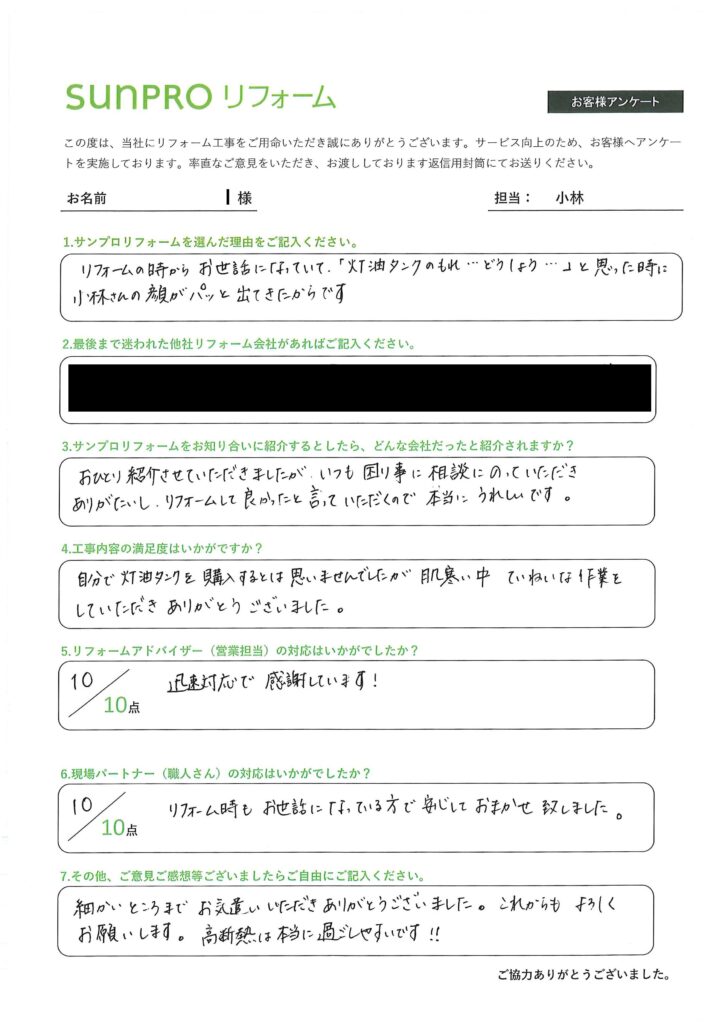 SUNPRO リフォーム
お客様アンケート
この度は、当社にリフォーム工事をご用命いただき誠にありがとうございます。サービス向上のため、お客様へアンケー
トを実施しております。率直なご意見をいただき、お渡ししております返信用封筒にてお送りください。
お名前 様 担当： 小林
1.サンプロリフォームを選んだ理由をご記入ください。
リフォームの時から お世話になっていて、「灯油タンクのもれ…どうしよう…」と思った時に
小林さんの顔がパッと出てきたからです
2.最後まで迷われた他社リフォーム会社があればご記入ください。
3.サンプロリフォームをお知り合いに紹介するとしたら、どんな会社だったと紹介されますか？
おひとり紹介させていただきましたが、いつも困り事に相談にのっていただき
ありがたいし、リフォームして良かったと言っていただくので 本当に うれしいです。
4.工事内容の満足度はいかがですか？
自分で灯油タンクを購入するとは思いませんでしたが 肌寒い中 ていねいな作業を
していただき ありがとう ございました。
5.リフォームアドバイザー（営業担当）の対応はいかがでしたか？
10/10点 迅速対応で 感謝しています！
6.現場パートナー（職人さん）の対応はいかがでしたか？
10/10点 リフォーム時も お世話になっている方で 安心して おまかせ 致しました。
7.その他、ご意見ご感想等ございましたらご自由にご記入ください。
細かいところまで お気遣いいただきありがとうございました。これからも よろしく
お願いします。高断熱は本当に過ごしやすいです!!
ご協力ありがとうございました。